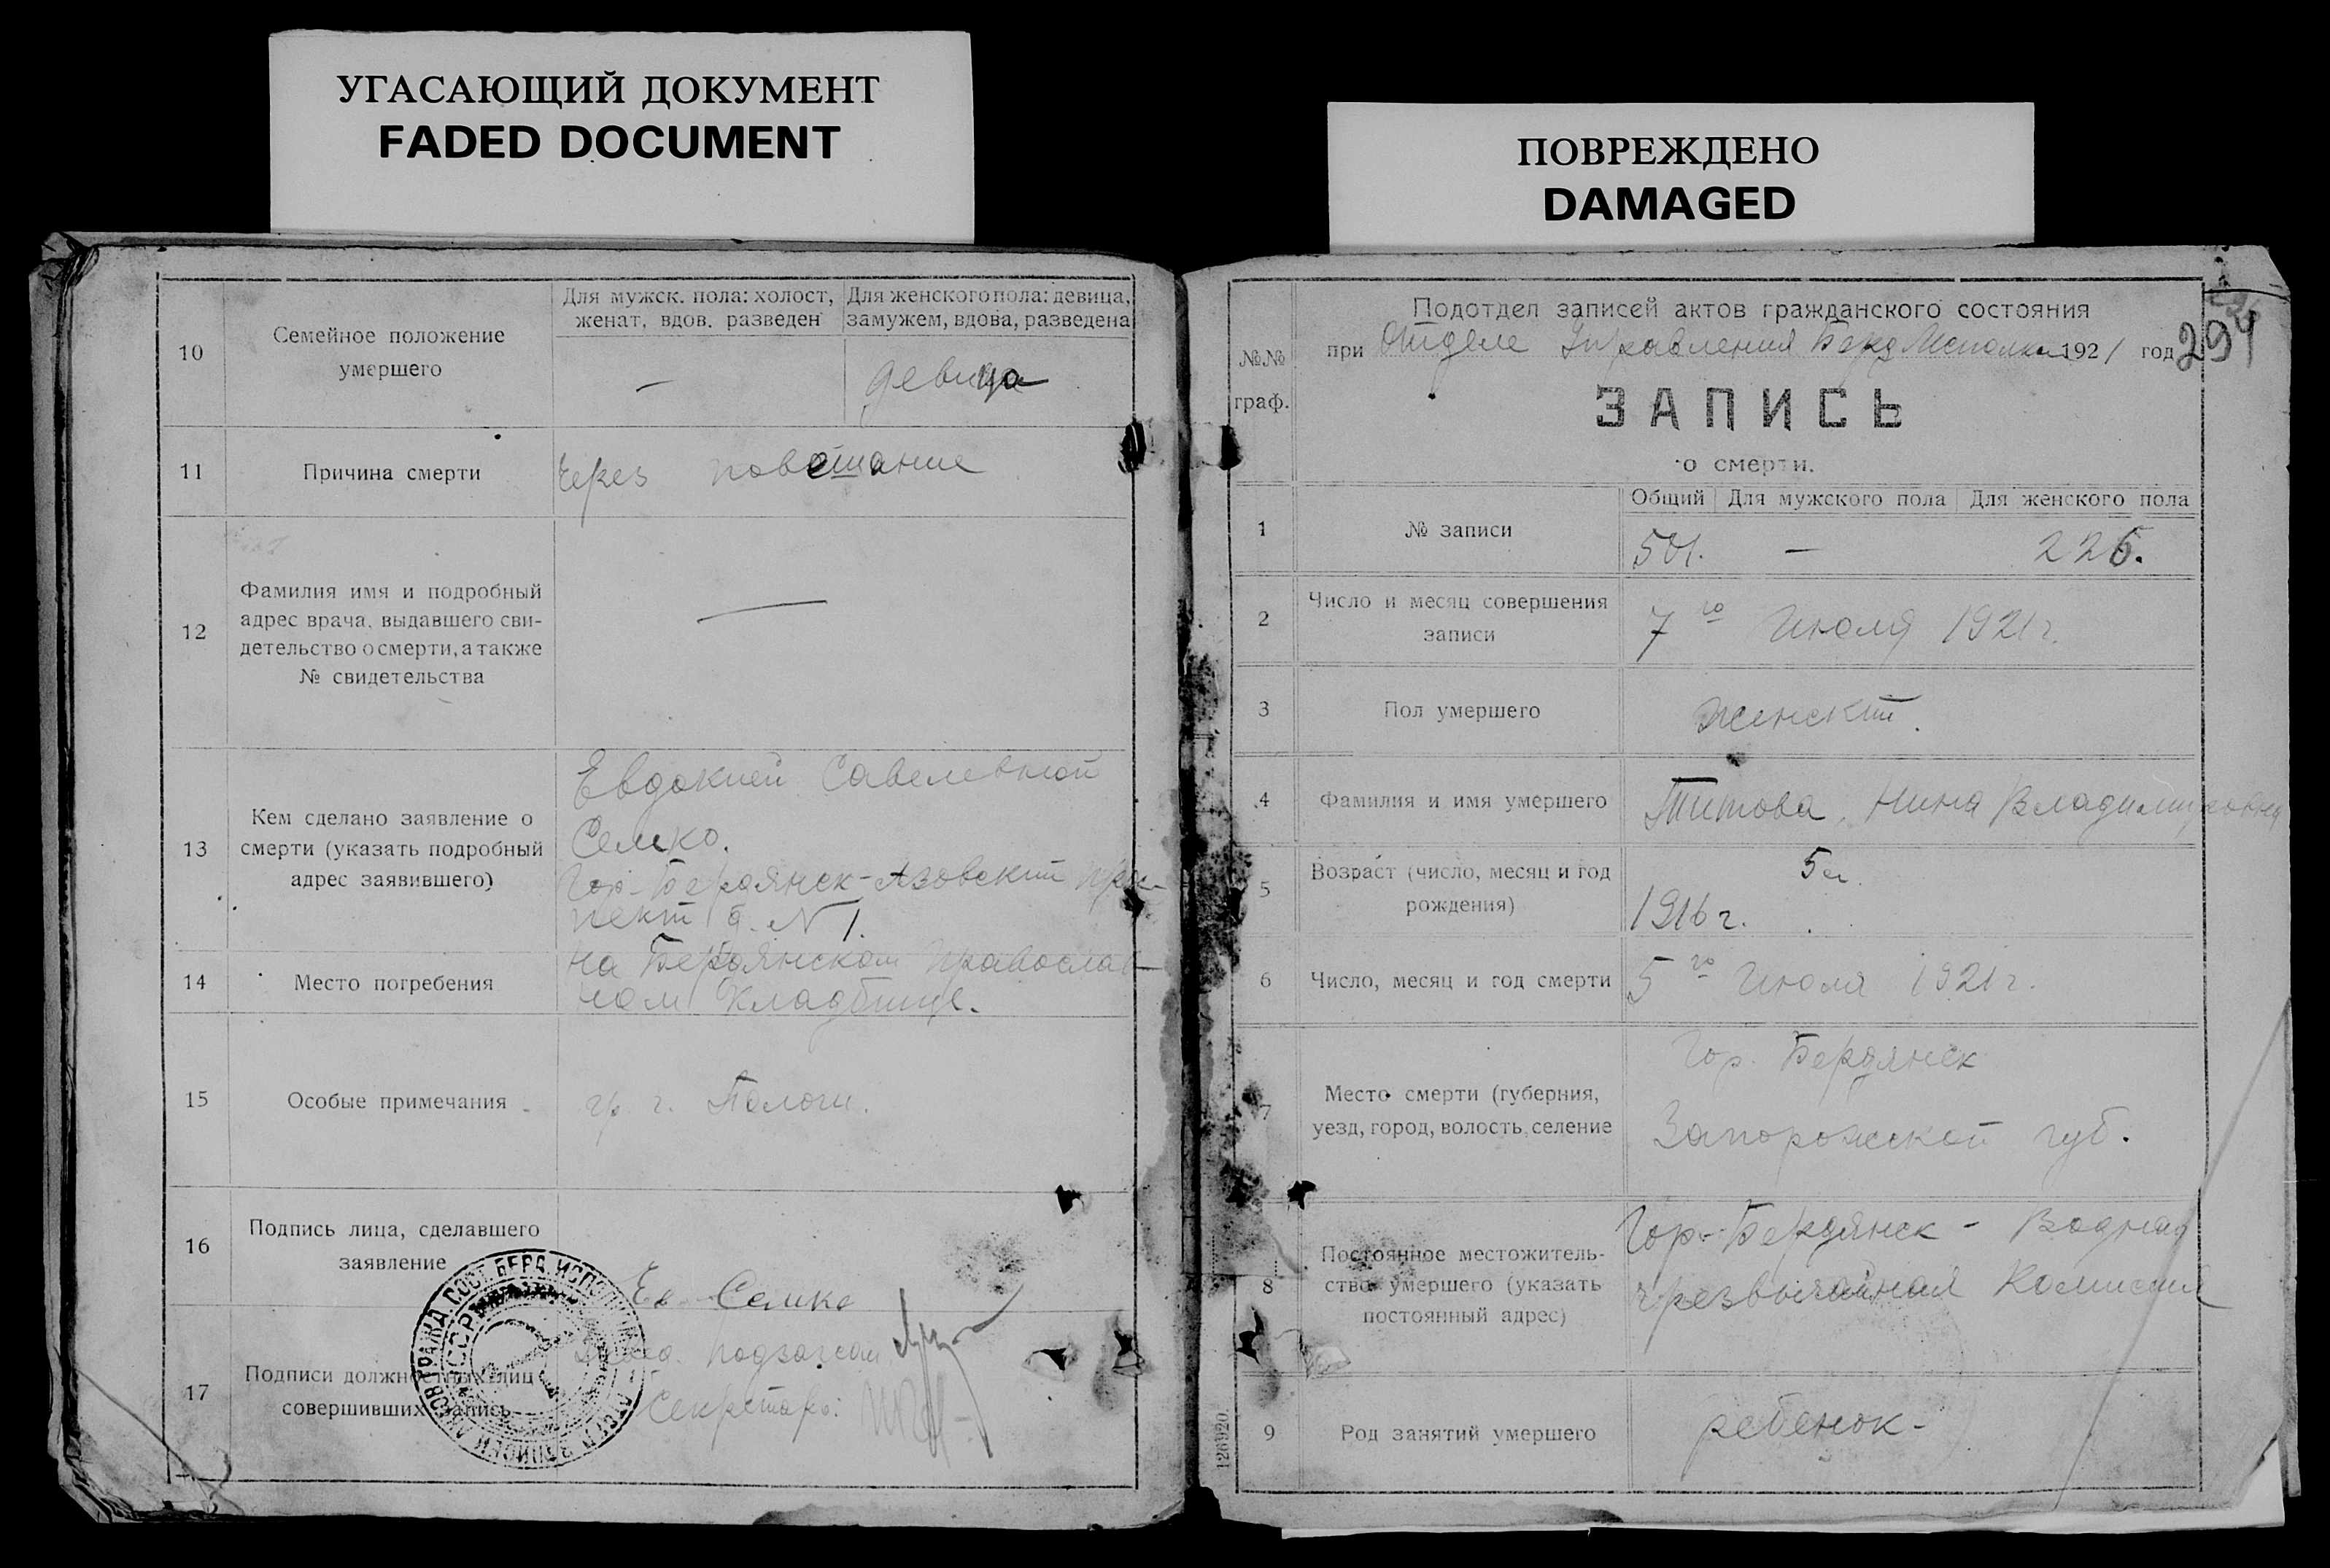 УГАСАЮЩИЙ ДОКУМЕНТ
FADED DOCUMENT
ПОВРЕЖДЕНО
DAMAGED
10
Семейное положение
умершего
Для мужск. пола: холост,
женат, вдов. разведен
Для женского пола: девица,
замужем, вдова, разведена
—
девица
11
Причина смерти
Через
12
Фамилия имя и подробный
адрес врача, выдавшего сви-
детельство о смерти, а также
№ свидетельства
—
13
Кем сделано заявление о
смерти (указать подробный
адрес заявившего)
Евдокией Савелевной
Семко.
Гор. Бердянск - Азовский прос-
пект д. N 1.
14
Место погребения
на Бердянском православ-
ном кладбище.
15
Особые примечания
гр. г. Пологи.
16
Подпись лица, сделавшего
заявление
Ев Семко
17
Подписи должностных лиц
совершивших запись
Секретарь:
№№
граф.
Подотдел записей актов гражданского состояния
при Отделе Управления Берд Исполкома 1921 год
294
ЗАПИСЬ
о смерти.
1
№ записи
Общий Для мужского пола Для женского пола
501. — 226.
2
Число и месяц совершения
записи
7го Июля 1921 г.
3
Пол умершего
женский.
4
Фамилия и имя умершего
Титова, Нина Владимировна
5
Возраст (число, месяц и год
рождения)
5 л.
1916 г.
6
Число, месяц и год смерти
5го Июля 1921 г.
7
Место смерти (губерния,
уезд, город, волость, селение
Гор. Бердянск
Запорожской губ.
8
Постоянное местожитель-
ство умершего (указать
постоянный адрес)
Гор. Бердянск - Водная
чрезвычайная Комиссия
9
Род занятий умершего
ребенок -
126920.